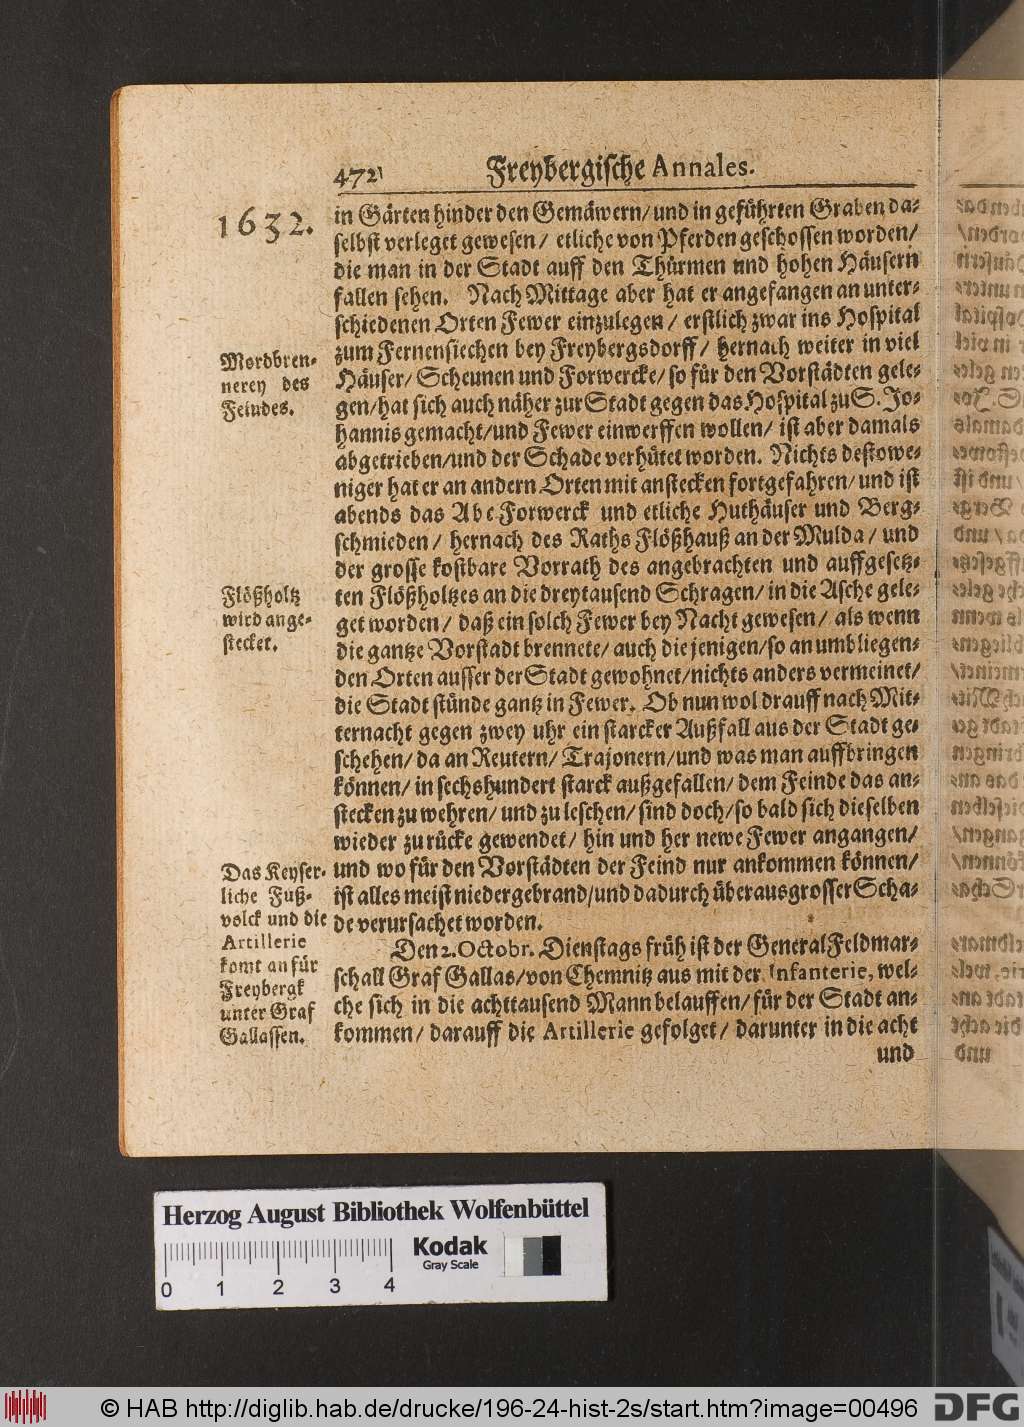 472 Freybergische Annales.
1632.
in Gärten hinder den Gemäwern/und in geführten Graben da-
selbst verleget gewesen/ etliche von Pferden geschossen worden/
die man in der Stadt auff den Thürmen und hohen Häusern
fallen sehen. Nach Mittage aber hat er angefangen an unter-
schiedenen Orten Fewer einzulegen/ erstlich zwar ins Hospital
zum Fernensiechen bey Freybergsdorff/ hernach weiter in viel
Häuser/ Scheunen und Forwercke/ so für den Vorstädten gele-
gen/hat sich auch näher zur Stadt gegen das Hospital zu S. Jo-
hannis gemacht/und Fewer einwerffen wollen/ ist aber damals
abgetrieben/und der Schade verhütet worden. Nichts destowe-
niger hat er an andern Orten mit anstecken fortgefahren/ und ist
abends das Abt Forwerck und etliche Huthäuser und Berg-
schmieden/ hernach des Raths Flößhauß an der Mulda/ und
der grosse kostbare Vorrath des angebrachten und auffgesetz-
ten Flößholtzes an die dreytausend Schragen/ in die Asche gele-
get worden/ daß ein solch Fewer bey Nacht gewesen/ als wenn
die gantze Vorstadt brennete/ auch die jenigen/so an umbliegen-
den Orten ausser der Stadt gewohnet/nichts anders vermeinet/
die Stadt stünde gantz in Fewer. Ob nun wol drauff nach Mit-
ternacht gegen zwey uhr ein starcker Außfall aus der Stadt ge-
schehen/ da an Reutern/ Trajonern/und was man auffbringen
können/ in sechshundert starck außgefallen/ dem Feinde das an-
stecken zu wehren/ und zu leschen/ sind doch/so bald sich dieselben
wieder zu rücke gewendet/ hin und her newe Fewer angangen/
und wo für den Vorstädten der Feind nur ankommen können/
ist alles meist niedergebrand/und dadurch überaus grosser Scha-
de verursachet worden.
Den 2. Octobr. Dienstags früh ist der General Feldmar-
schall Graf Gallas/ von Chemnitz aus mit der Infanterie, wel-
che sich in die achttausend Mann belauffen/ für der Stadt an-
kommen/ darauff die Artillerie gefolget/ darunter in die acht
und
Mordbren-
nerey des
Feindes.
Flößholtz
wird ange-
stecket.
Das Keyser-
liche Fuß-
volck und die
Artillerie
komt an für
Freybergk
unter Graf
Gallassen.
Herzog August Bibliothek Wolfenbüttel
0 1 2 3 4
Kodak
Gray Scale
© HAB http://diglib.hab.de/drucke/196-24-hist-2s/start.htm?image=00496
DFG